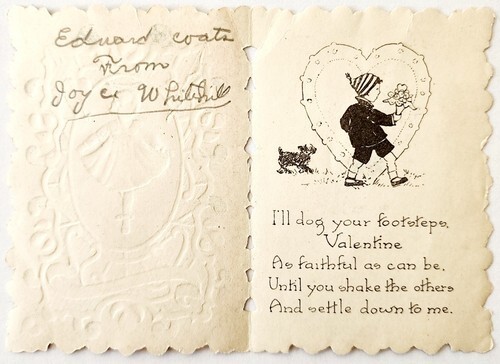 Eduard coats
From
Joyce Whitehill
I'll dog your footsteps,
Valentine
As faithful as can be,
Until you shake the others
And settle down to me.